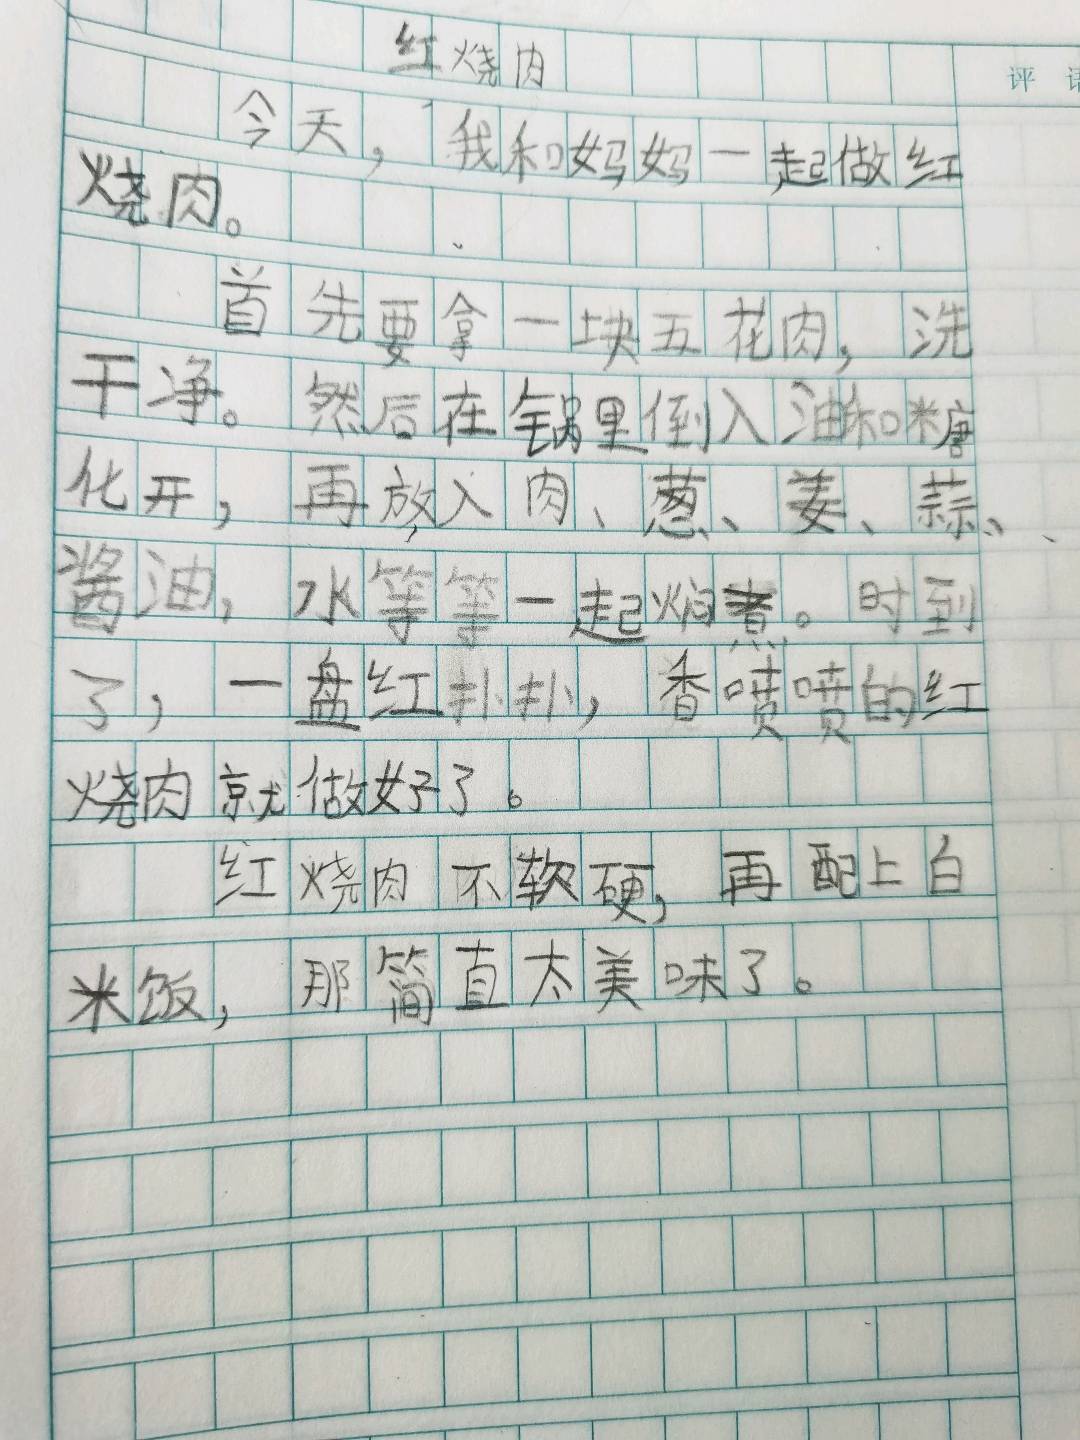 红烧肉
评语
今天，我和妈妈一起做红
烧肉。
首先要拿一块五花肉，洗
干净。然后在锅里倒入油和糖
化开，再放入肉、葱、姜、蒜、
酱油，水等等一起焖煮。时到
了，一盘红扑扑，香喷喷的红
烧肉就做好了。
红烧肉不软硬，再配上白
米饭，那简直太美味了。